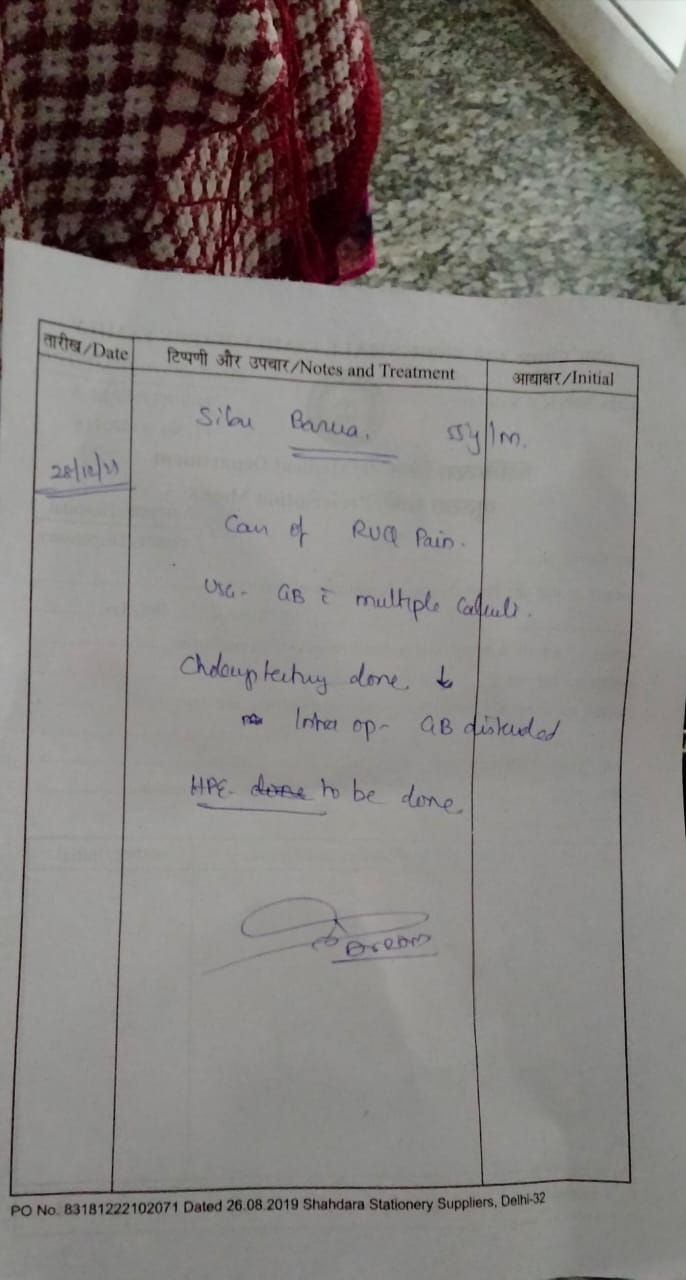 तारीख/Date
टिप्पणी और उपचार/Notes and Treatment
आद्याक्षर/Initial
Sibu Barua. 55y/m.
28/12/
Case of RUQ Pain.
USG- GB c̄ multiple Calculi.
Cholecystectomy done. ↓
Intra op- GB distended
HPE- done to be done.
PO No. 83181222102071 Dated 26.08.2019 Shahdara Stationery Suppliers, Delhi-32